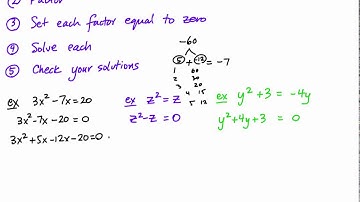 ② Factor
③ Set each factor equal to zero
④ Solve each
⑤ Check your solutions
-60
5 + -12 = -7
1 60
2 30
3 20
4 15
5 12
ex 3x² - 7x = 20
3x² - 7x - 20 = 0
3x² + 5x - 12x - 20 = 0
ex z² = z
z² - z = 0
ex y² + 3 = -4y
y² + 4y + 3 = 0